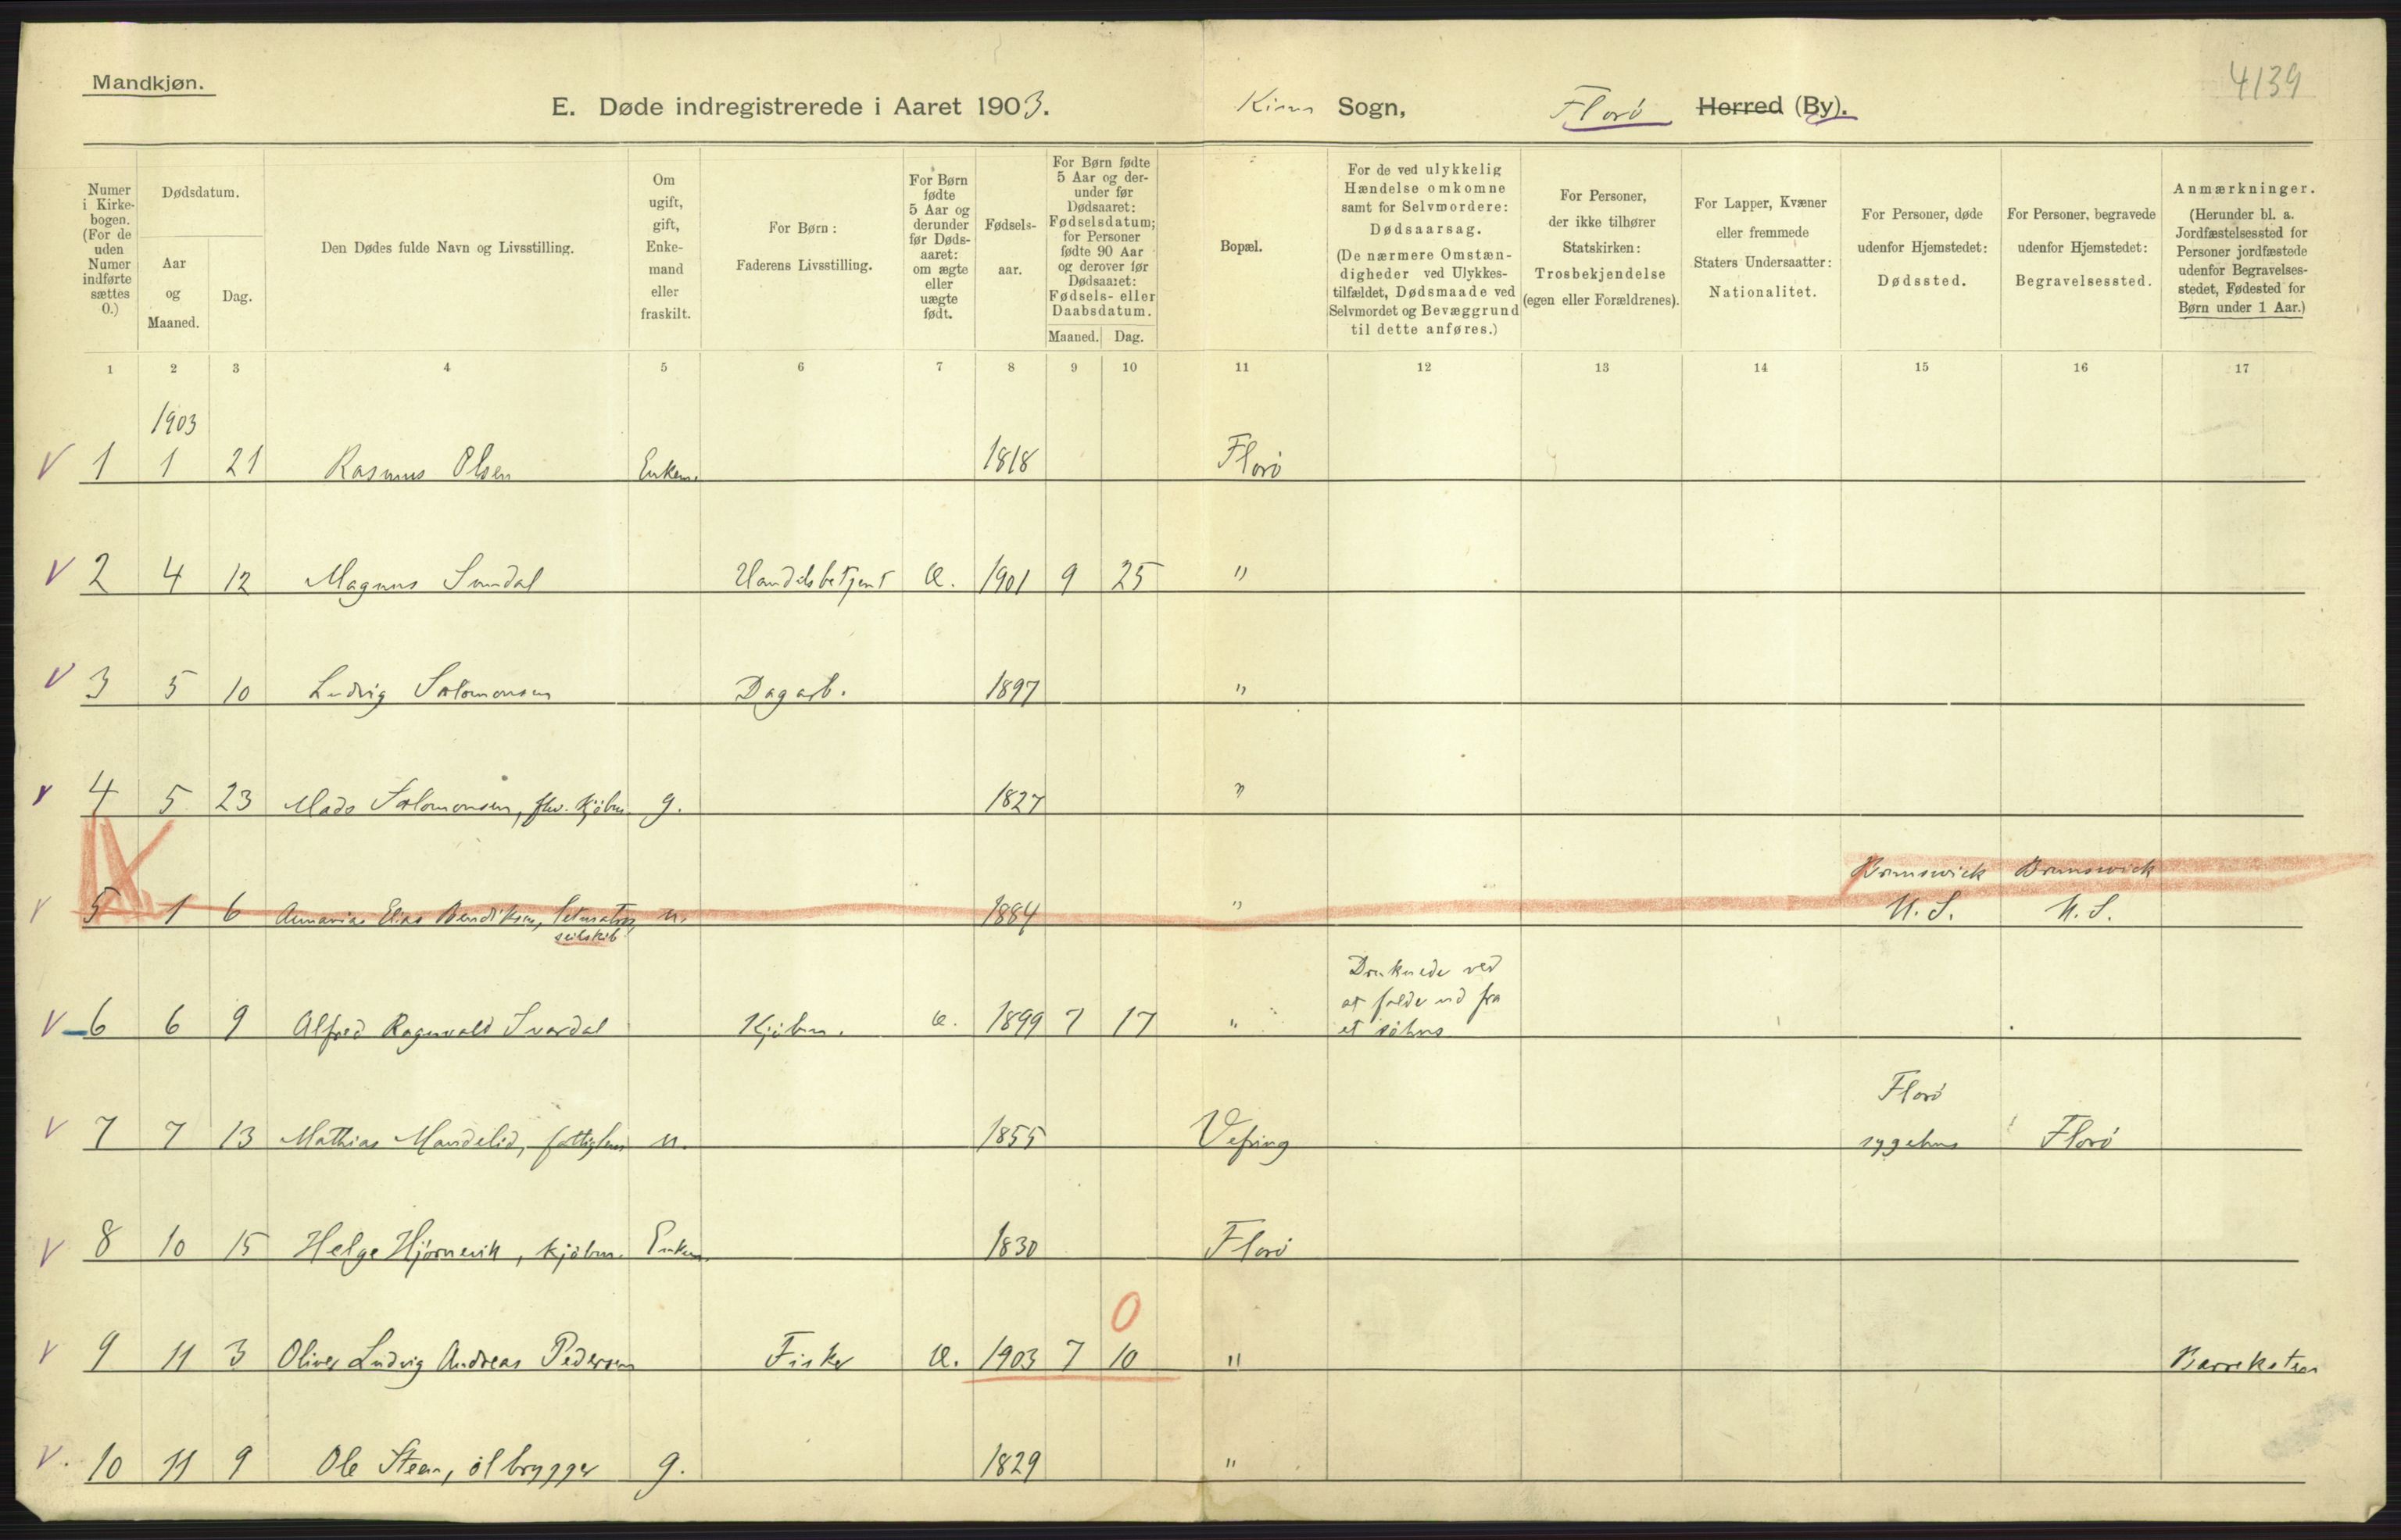 Mandkjøn.
4139
E. Døde indregistrerede i Aaret 1903.
Kinn Sogn, Florö Herred (By).
Numer i Kirkebogen. (For de uden Numer indførte sættes 0.)
Dødsdatum.
Aar og Maaned.
Dag.
Den Dødes fulde Navn og Livsstilling.
Om ugift, gift, Enkemand eller fraskilt.
For Børn: Faderens Livsstilling.
For Børn fødte 5 Aar og derunder før Dødsaaret: om ægte eller uægte født.
Fødselsaar.
For Børn fødte 5 Aar og derunder før Dødsaaret: Fødselsdatum; for Personer fødte 90 Aar og derover før Dødsaaret: Fødsels- eller Daabsdatum.
Maaned. Dag.
Bopæl.
For de ved ulykkelig Hændelse omkomne samt for Selvmordere: Dødsaarsag. (De nærmere Omstændigheder ved Ulykkestilfældet, Dødsmaade ved Selvmordet og Bevæggrund til dette anføres.)
For Personer, der ikke tilhører Statskirken: Trosbekjendelse (egen eller Forældrenes).
For Lapper, Kvæner eller fremmede Staters Undersaatter: Nationalitet.
For Personer, døde udenfor Hjemstedet: Dødssted.
For Personer, begravede udenfor Hjemstedet: Begravelsessted.
Anmærkninger. (Herunder bl. a. Jordfæstelsessted for Personer jordfæstede udenfor Begravelsesstedet, Fødested for Børn under 1 Aar.)
1 2 3 4 5 6 7 8 9 10 11 12 13 14 15 16 17
1903
1 1 21 Rasmus Olsen Enkem. 1818 Florö
2 4 12 Magnus Sundal Handelsbetjent Æ. 1901 9 25 "
3 5 10 Ludvig Solomonsen Dagarb. 1897 "
4 5 23 Mads Solomonsen, fhv. kjöbm. g. 1827 "
Brunswick Brunswick
5 1 6 Annanias Elias Bendiksen, Letmatros, u. 1884 " U. S. U. S.
seilskib
Druknede ved
at falde ud fra
6 6 9 Alfred Ragnvald Svardal Kjöbm. Æ. 1899 7 17 " et söhus
Florö
7 7 13 Mathias Mandelid, fattiglem u. 1855 Vefring sygehus Florö
8 10 15 Helge Hjörnevik, kjöbm. Enkem. 1830 Florö
0
9 11 3 Oliver Ludvig Andreas Pedersen Fisker Æ. 1903 7 10 " Barreksten
10 11 9 Ole Steen, ölbrygger g. 1829 "